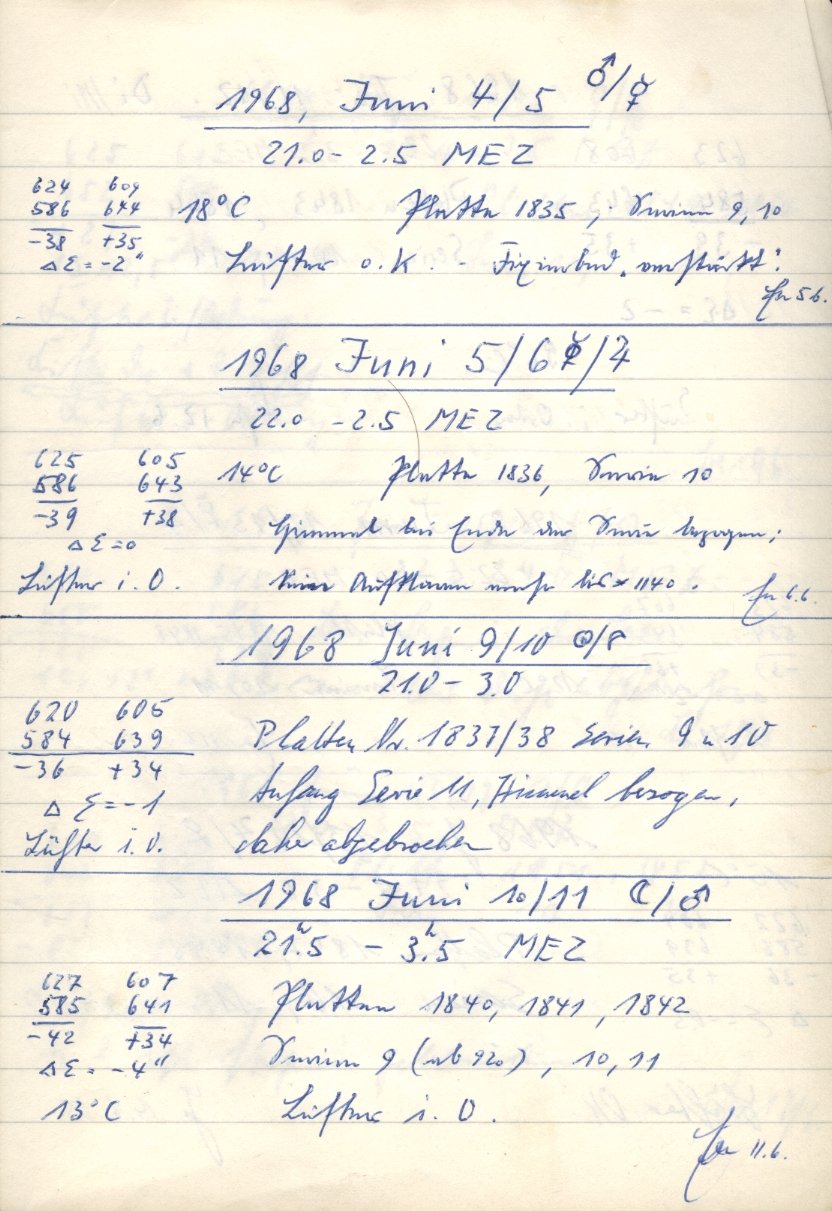 1968, Juni 4/5 ♂/☿
21.0 - 2.5 MEZ
624 609
586 644 18°C Platte 1835, Serien 9, 10
-38 +35
Δε = -2" Lüfter o.K. - Fixierbad "verstärkt".
5.6.
1968 Juni 5/6 ☿/♃
22.0 - 2.5 MEZ
625 605 14°C Platte 1836, Serie 10
586 643
-39 +38 Himmel bei Ende der Serie bezogen;
Δε = 0
Lüfter i.O. kein Aufklaren mehr bis 1140.
6.6.
1968 Juni 9/10 ☉/
21.0 - 3.0
620 605
584 639 Platten Nr. 1837/38 Serien 9 u 10
-36 +34 Anfang Serie 11, Himmel bezogen,
Δε = -1
Lüfter i.O. daher abgebrochen
1968 Juni 10/11 ☾/♂
21h.5 - 3h.5 MEZ
627 607
585 641 Platten 1840, 1841, 1842
-42 +34
Δε = -4" Serien 9 (ab 920), 10, 11
13°C Lüfter i.O.
11.6.